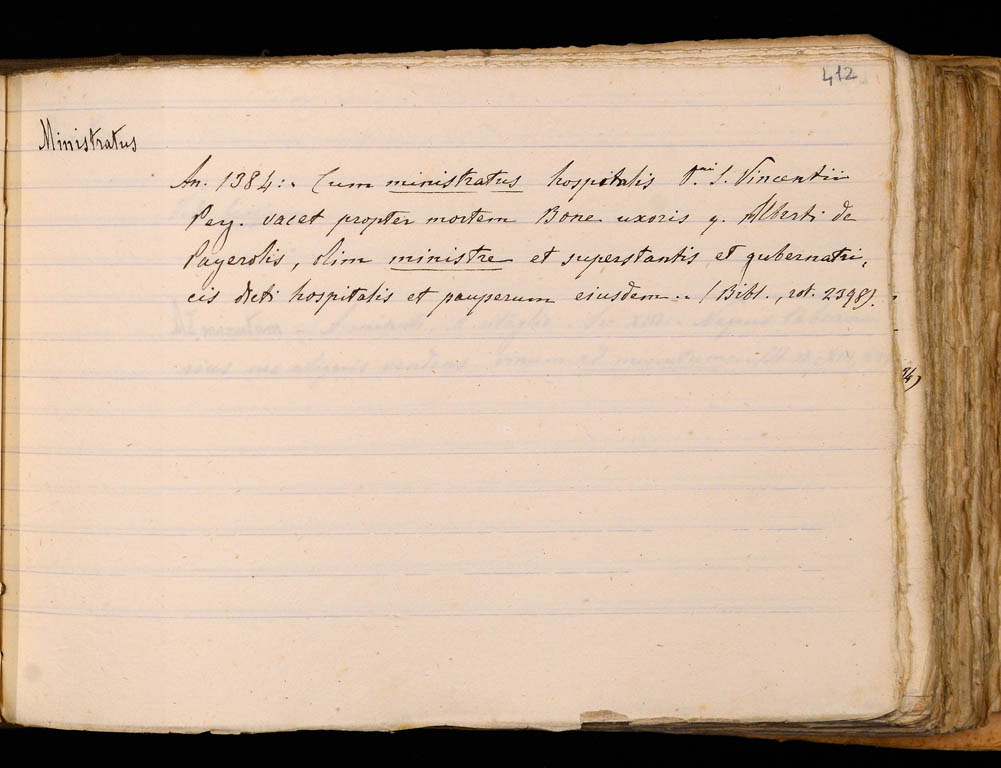 412
Ministratus
An. 1384: . Cum ministratus hospitalis D.ni S. Vincentii
Per. vacet propter mortem Bone uxoris q. Alberti de
Payerolis, olim ministre et superstantis et gubernatri,
cis dicti hospitalis et pauperum eiusdem .. (Bibl., rot. 2398).